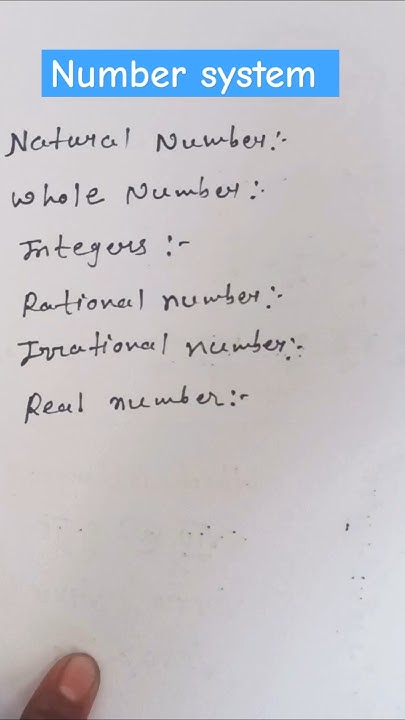 Number system
Natural Number:-
Whole Number:-
Integers :-
Rational number:-
Irrational number:-
Real number:-